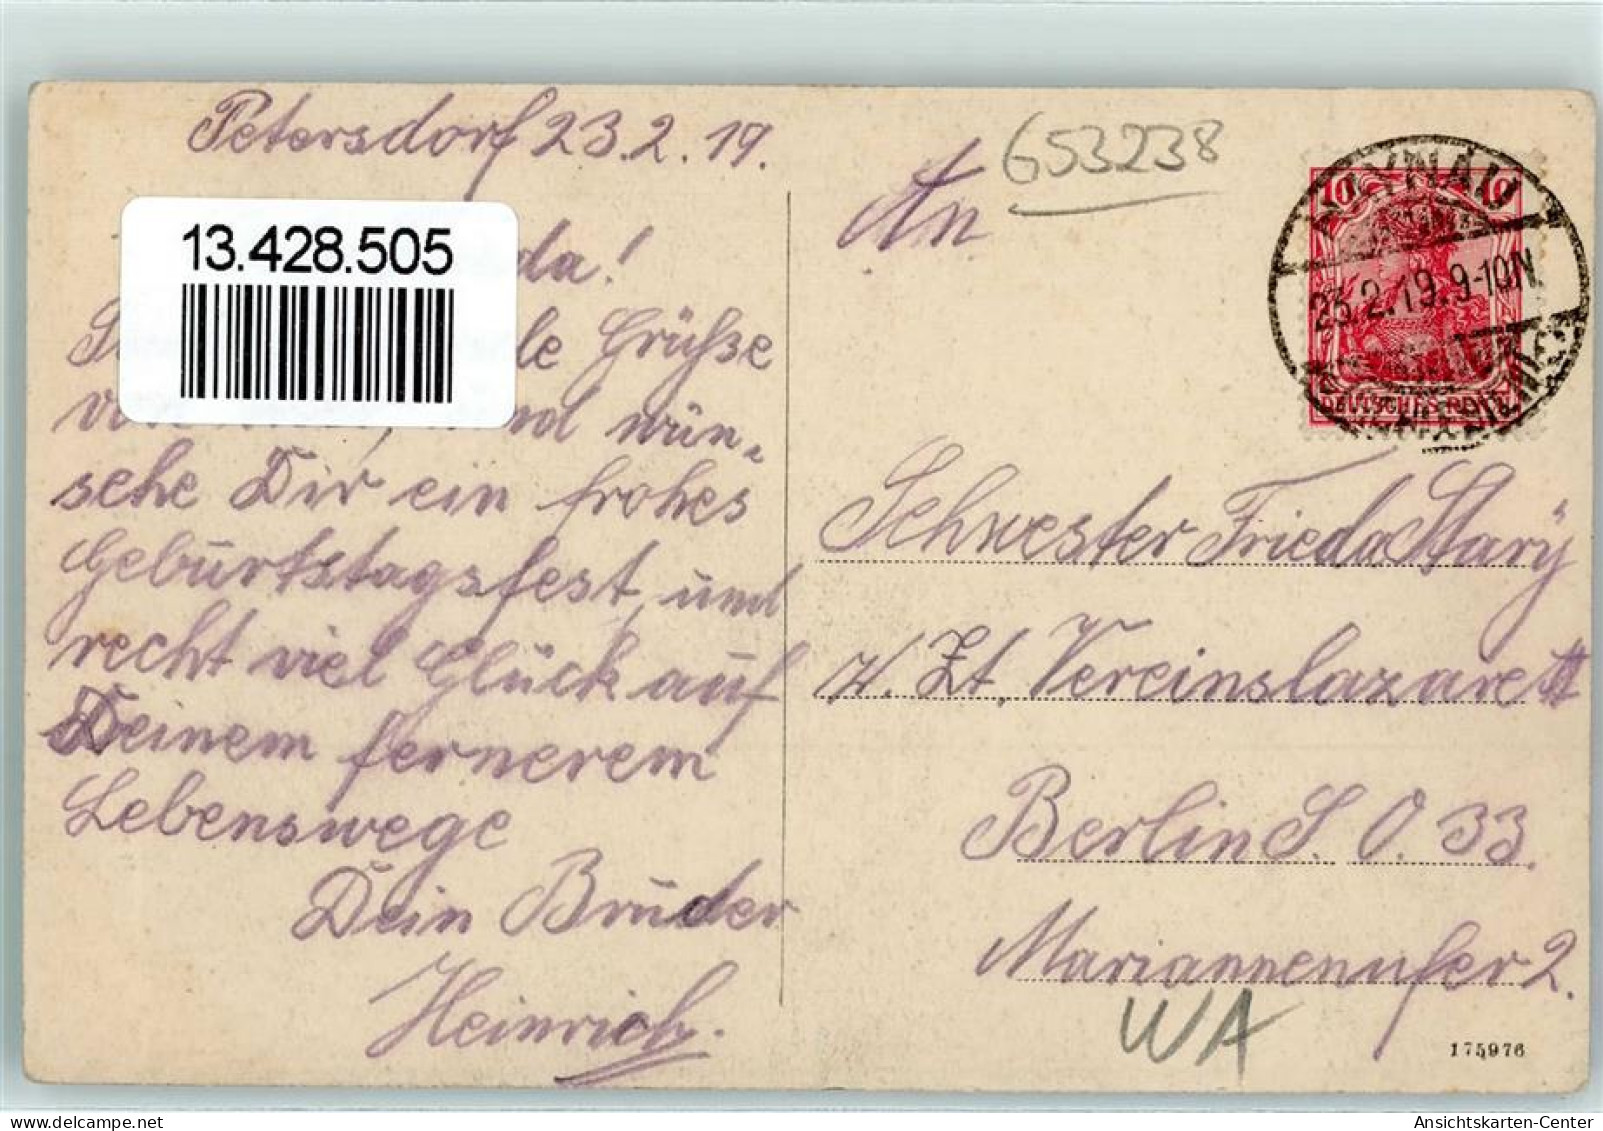 Petersdorf 23.2.19.
13.428.505
da!
le Grüßse
und wün„
sche Dir ein frohes
Geburtstagsfest, und
recht viel Glück auf
Deinem fernerem
Lebenswege
Dein Bruder
Heinrich.
An
653238
10 10
DEUTSCHES REICH
HAYNAU
23.2.19.9-10N
Schwester Frieda Starÿ
z. Zt. Vereinslazarett
Berlin S. O. 33.
Mariannenufer 2.
WA
175976
Ansichtskarten-Center